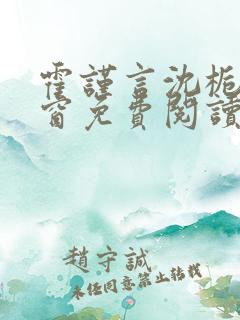 霍謹言沈栀
窗免費閱讀
趙守誠
未经同意禁止转载